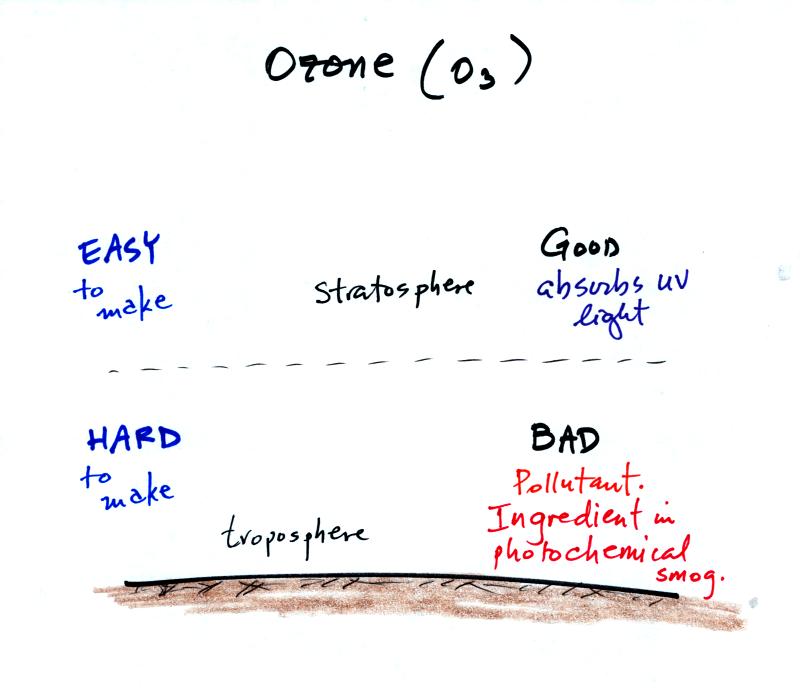 Ozone (O3)
EASY
to
make
stratosphere
GOOD
absorbs UV
light
HARD
to
make
troposphere
BAD
Pollutant.
Ingredient in
photochemical
smog.